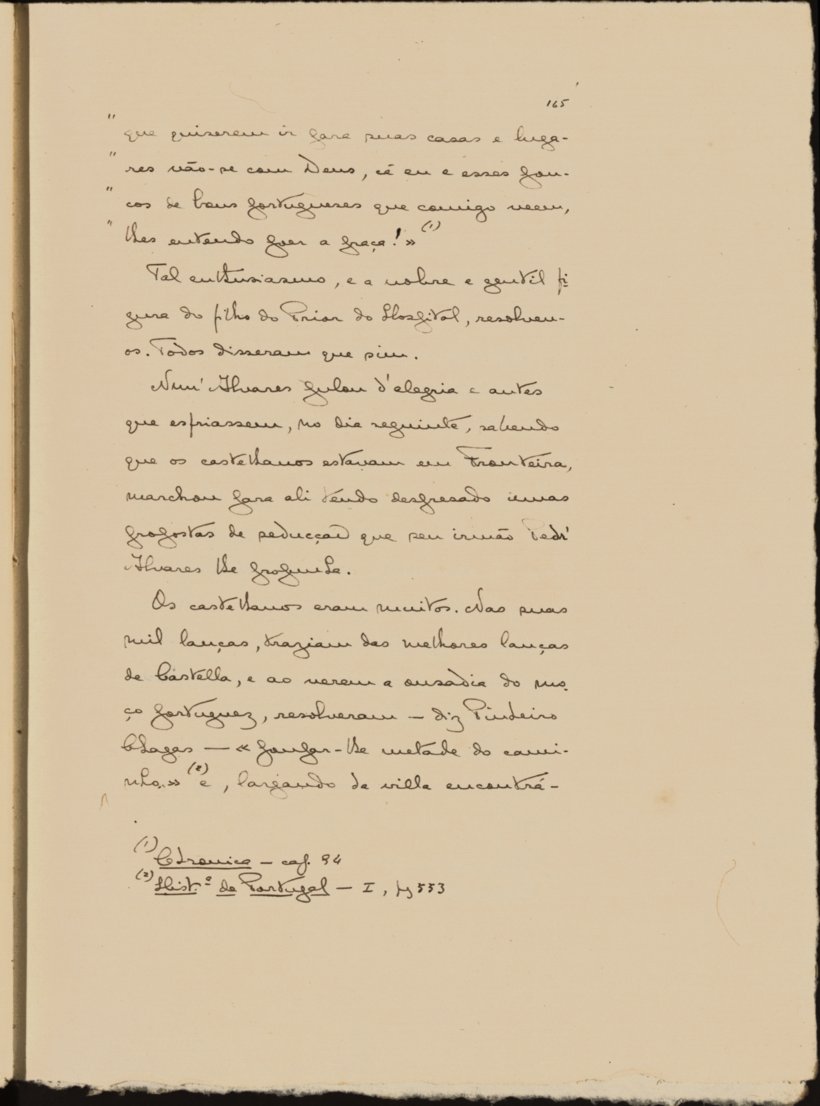 165
" que quiserem ir para suas casas e luga-
" res vão-se com Deus, cá eu e esses pou-
" cos de bons portugueses que comigo veem,
" lhes entendo poer a praça!» (1)
Tal enthusiasmo, e a nobre e gentil fi-
gura do filho do Prior do Hospital, resolveu-
os. Todos disseram que sim.
Nun' Alvares pulou d'alegria e antes
que esfriassem, no dia seguinte, sabendo
que os castelhanos estavam em Fronteira,
marchou para ali tendo despresado umas
propostas de seducção que seu irmão Pedr'
Alvares lhe propunha.
Os castelhanos eram muitos. Nas suas
mil lanças, traziam das melhores lanças
de Castella, e ao verem a ousadia do mo-
ço portuguez, resolveram — diz Pinheiro
Chagas — « poupar-lhe metade do cami-
nho.» (2) e, largando da villa encontrá-
(1) Chronica — cap. 94
(2) Hist.ª de Portugal — I, pg 553